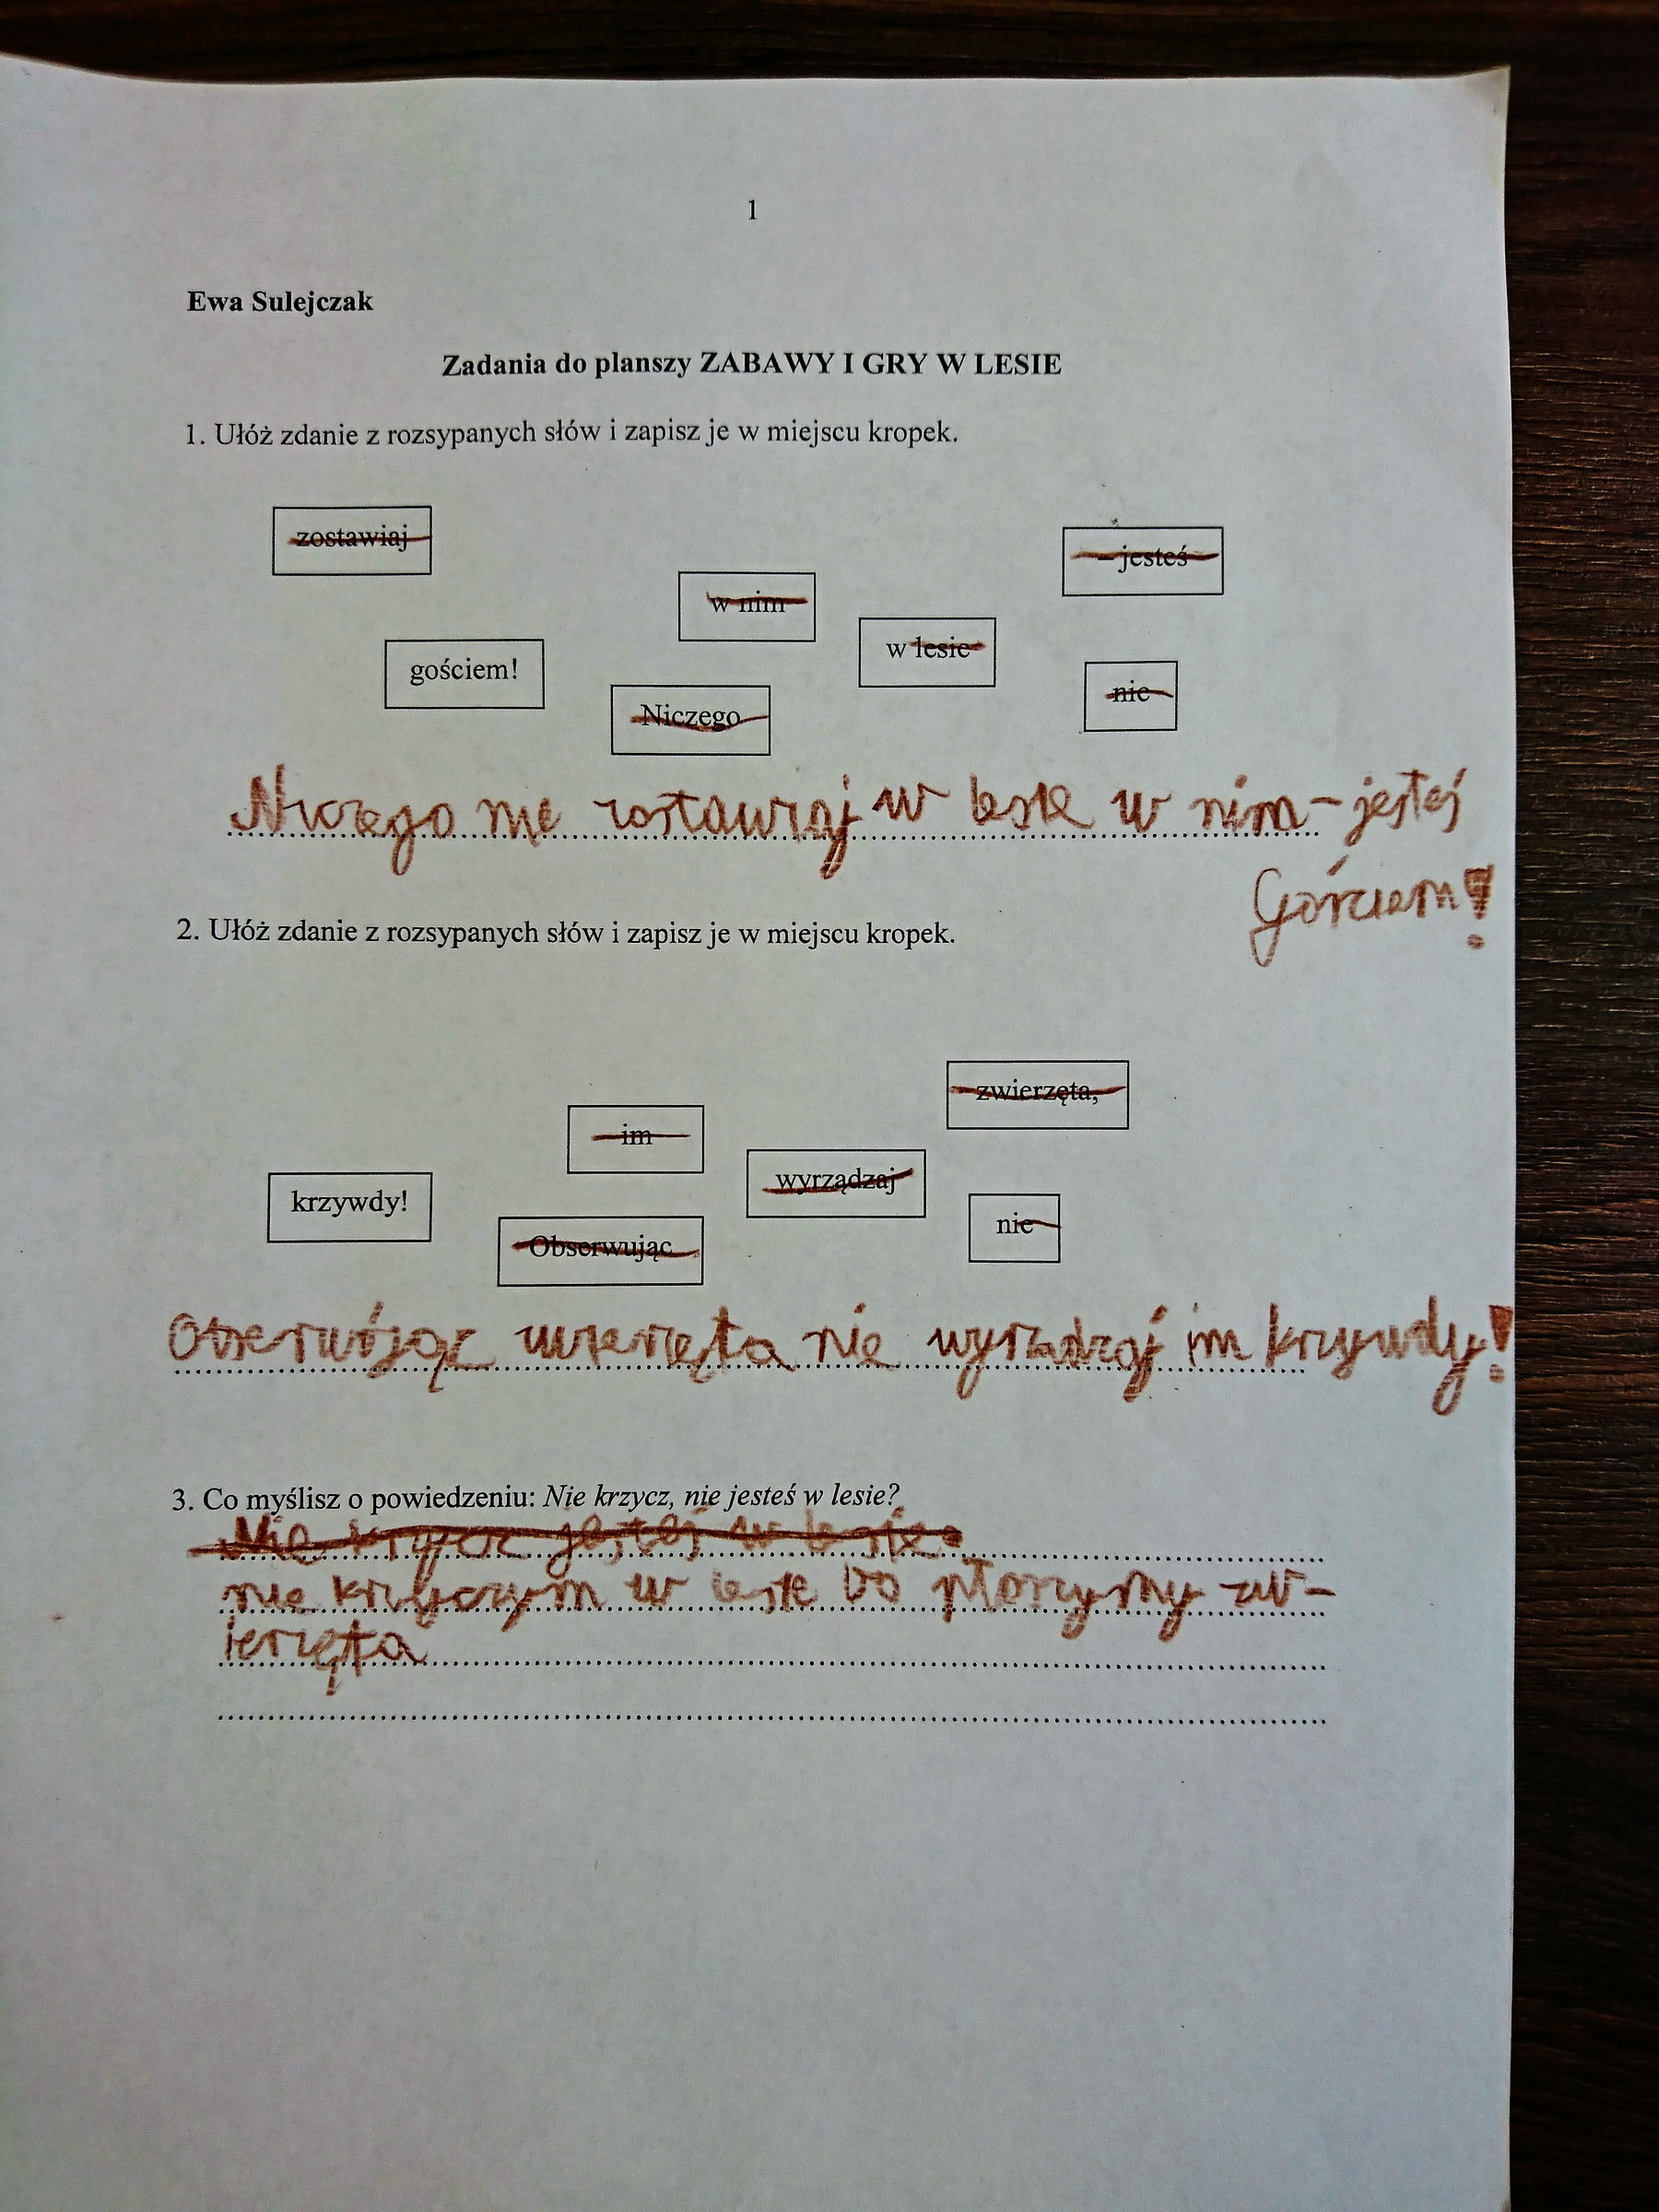 1
Ewa Sulejczak
Zadania do planszy ZABAWY I GRY W LESIE
1. Ułóż zdanie z rozsypanych słów i zapisz je w miejscu kropek.
zostawiaj
– jesteś
w nim
w lesie
gościem!
nie
Niczego
Niczego nie zostawiaj w lesie w nim – jesteś
Gościem!
2. Ułóż zdanie z rozsypanych słów i zapisz je w miejscu kropek.
zwierzęta,
im
wyrządzaj
krzywdy!
nie
Obserwując
Obserwójąc zwierzęta nie wyrządzaj im krzywdy!
3. Co myślisz o powiedzeniu: Nie krzycz, nie jesteś w lesie?
Nie krzycz jesteś w lesie
nie krzyczym w lesie bo płoszymy zw-
ierzęta